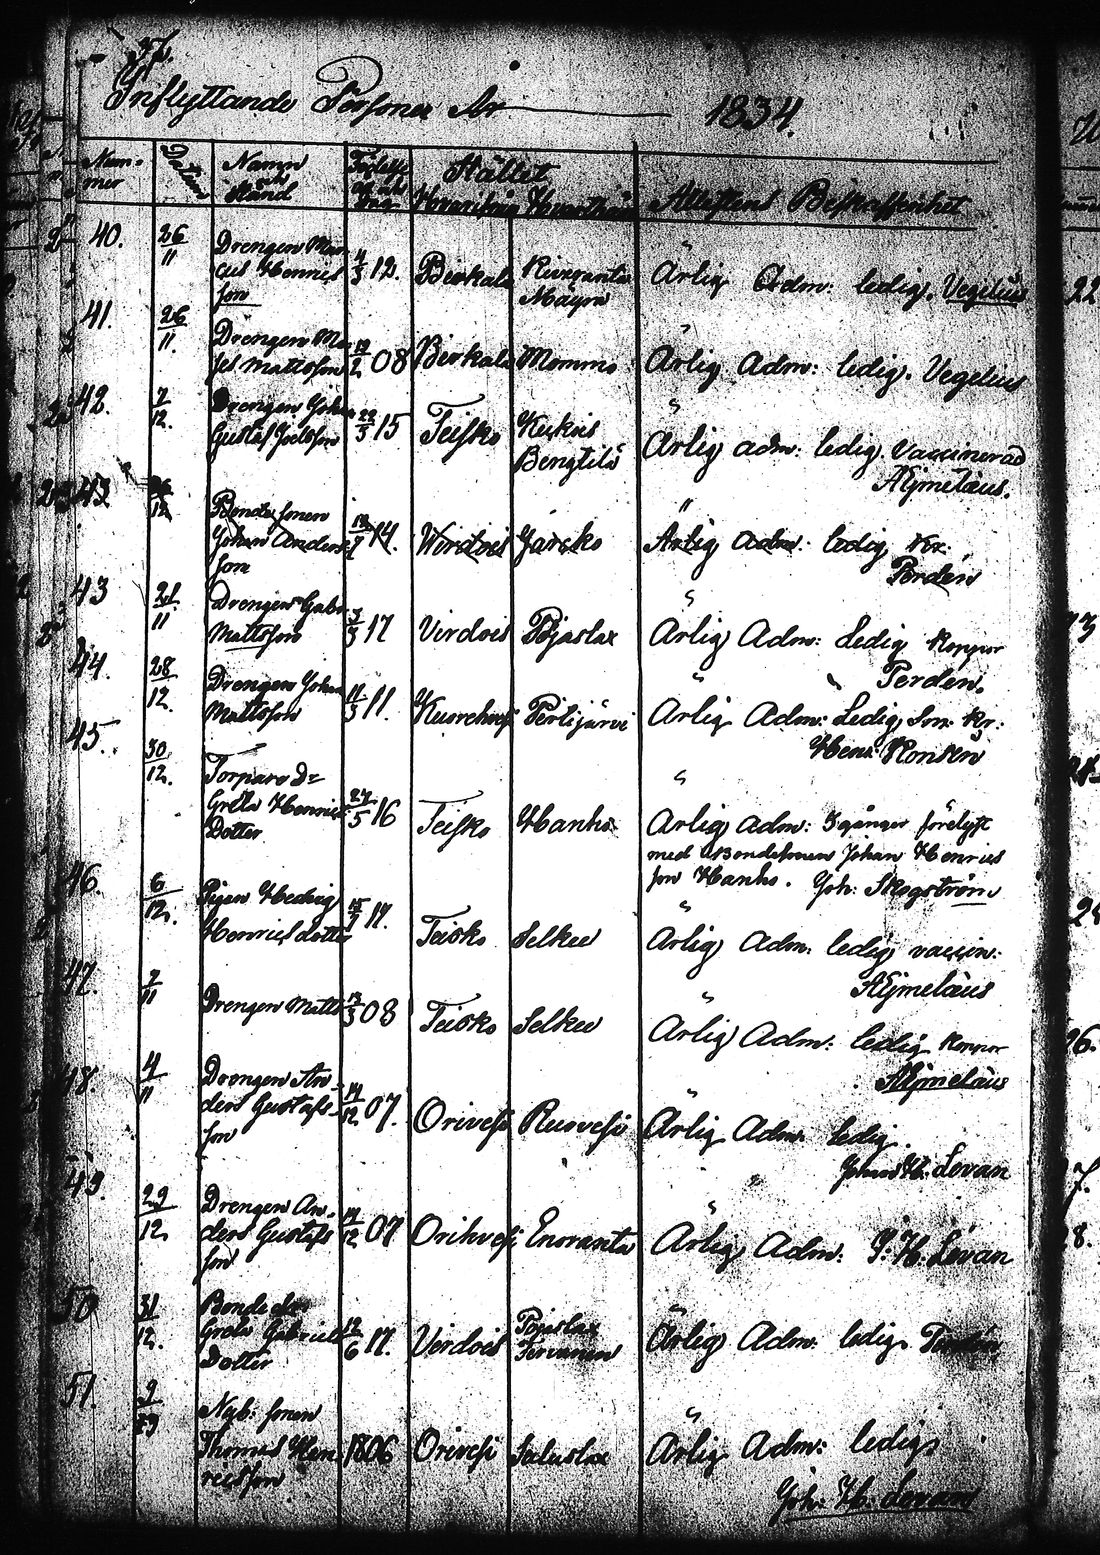 Inflyttande Personer År 1834.
Num-
mer
Datum
Namn
och
Stånd
Födelse
år och
dag
Stället
Hvarifrån Hvarthän
Attestens Beskaffenhet
40. 26/11 Drengen Mar
cus Henrics
son 4/3 12. Birkala Mayra
Ärlig Adm: ledig. Vegelius
41. 26/11. Drengen Mo
ses Mattsson 12/2 08 Birkala Mommo
Ärlig Adm: ledig. Vegelius
42. 7/12. Drengen Johan
Gustaf Joelsson 22/3 15 Teisko
Bengtilä
Ärlig adm: ledig. Vaccinerad
Aejmelæus.
43 26/12 Bonde sonen
Johan Anders
son 14. Wirdois Jäusko
Ärlig adm: ledig Kr:
Perdén
43 21/11 Drengen Gabr
Mattsson 3/3 17 Virdois Pojaslax
Ärlig Adm: Ledig Koppor
Perdén.
44. 28/12. Drengen Johan
Mattsson 11/3 11. Kuorehvesi Perlijärvi
Ärlig Adm: Ledig, Som: Kr:
Henr: Ronkén
45. 30/12. Torpare Dr
Greta Henrics
Dotter 27/5 16 Teisko Hanho
Ärlig adm: 3 gånger förelyst
med Bondesonen Johan Henrics
son Hanho. Joh: Skogström
46. 6/12. Pigan Hedvig
Henricsdotter 15/7 17. Teisko Selkee
Ärlig Adm: ledig vaccin:
Aejmelæus
47. 7/11 Drengen Matts 13/3 08 Teisko Selkee
Ärlig Adm: ledig Koppor
Aejmelæus
48 4/11 Drengen An-
ders Gustafs-
son 14/12 07. Orivesi Ruovesi
Ärlig Adm. ledig.
Johan H: Levan
49. 29/12 Drengen An-
ders Gustafs
son 14/12 07 Orihvesi Enoranta
Ärlig Adm: J: H: Levan
50 31/12. Bonde dr
Greta Gabriels
Dotter 12/6 17. Virdois Pojaslax
Ärlig Adm: ledig. Perdén
51. 9/ Nyb: sonen
Thomas Hen
ricsson 1806 Orivesi
Ärlig Adm: ledig
Joh: H: Levan